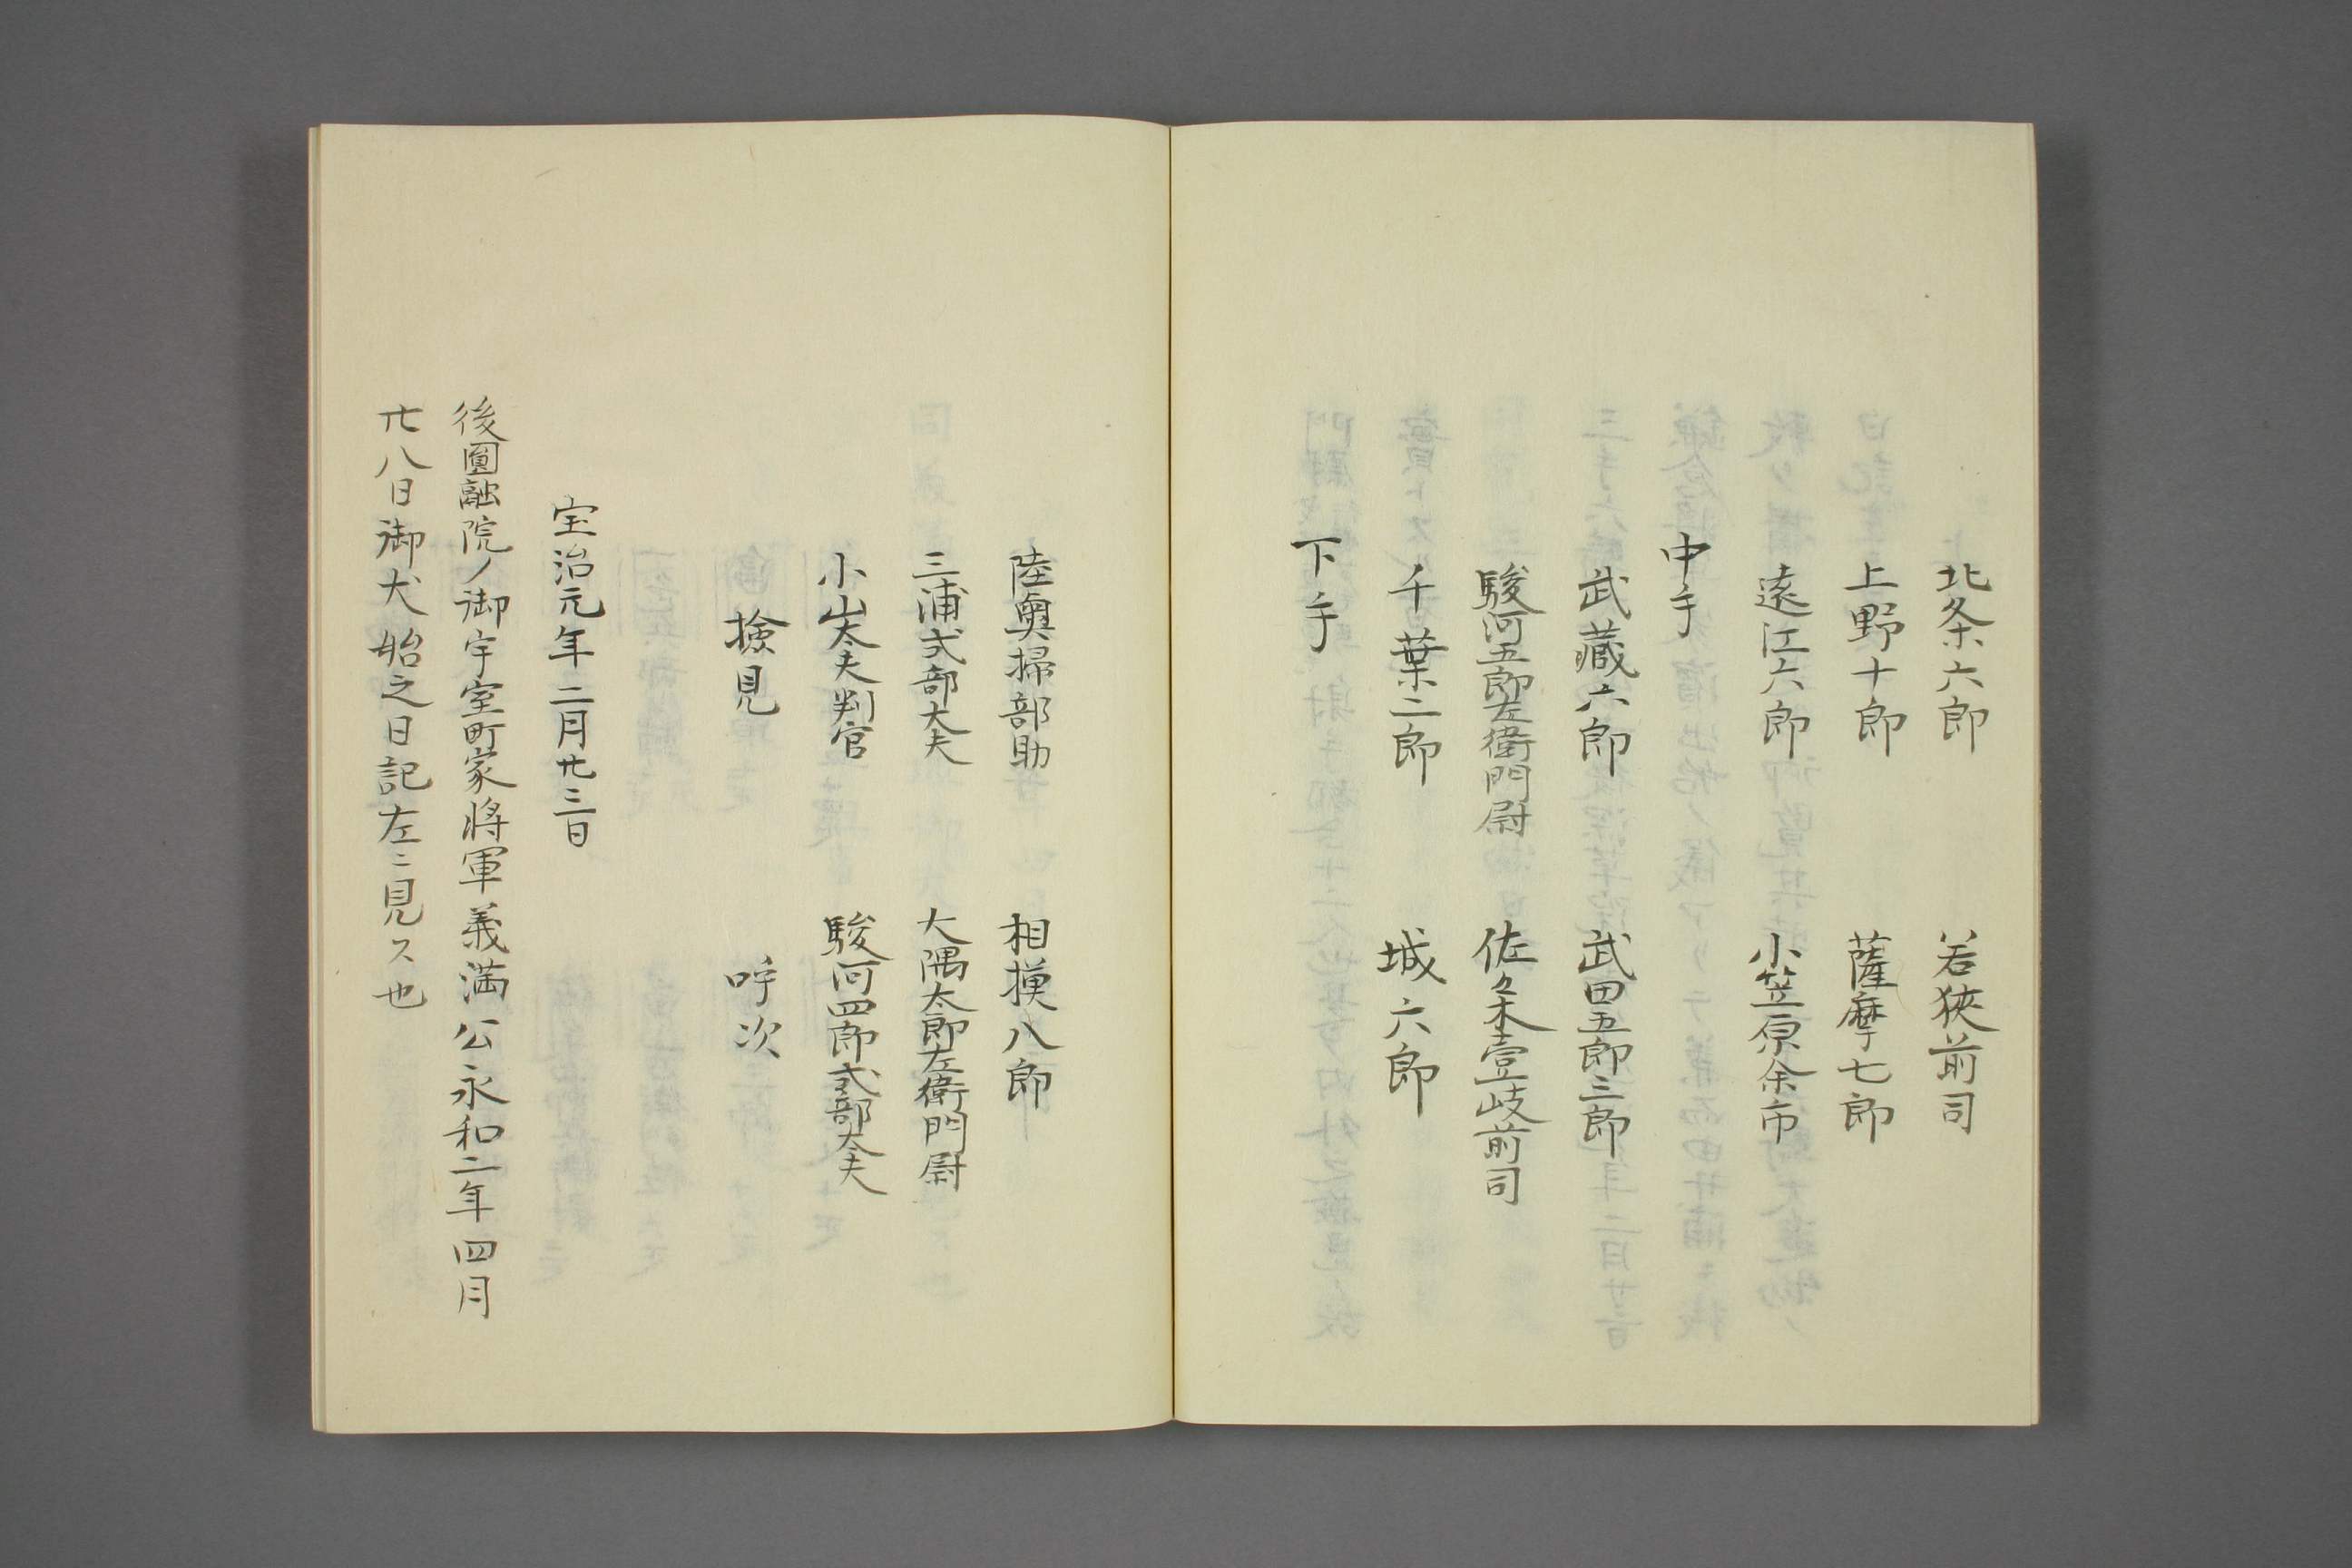 北条六郎　若狭前司
上野十郎　薩摩七郎
遠江六郎　小笠原余市
中手
武藏六郎　武田五郎三郎
駿河五郎左衛門尉　佐々木壹岐前司
千葉二郎　城六郎
下手
陸奥掃部助　相摸八郎
三浦式部大夫　大隅太郎左衛門尉
小山大夫判官　駿河四郎式部大夫
撿見　呼次
宝治元年二月廿三日
後圓融院ノ御宇室町家将軍義満公永和二年四月
廿八日御犬始之日記左ニ見ス也